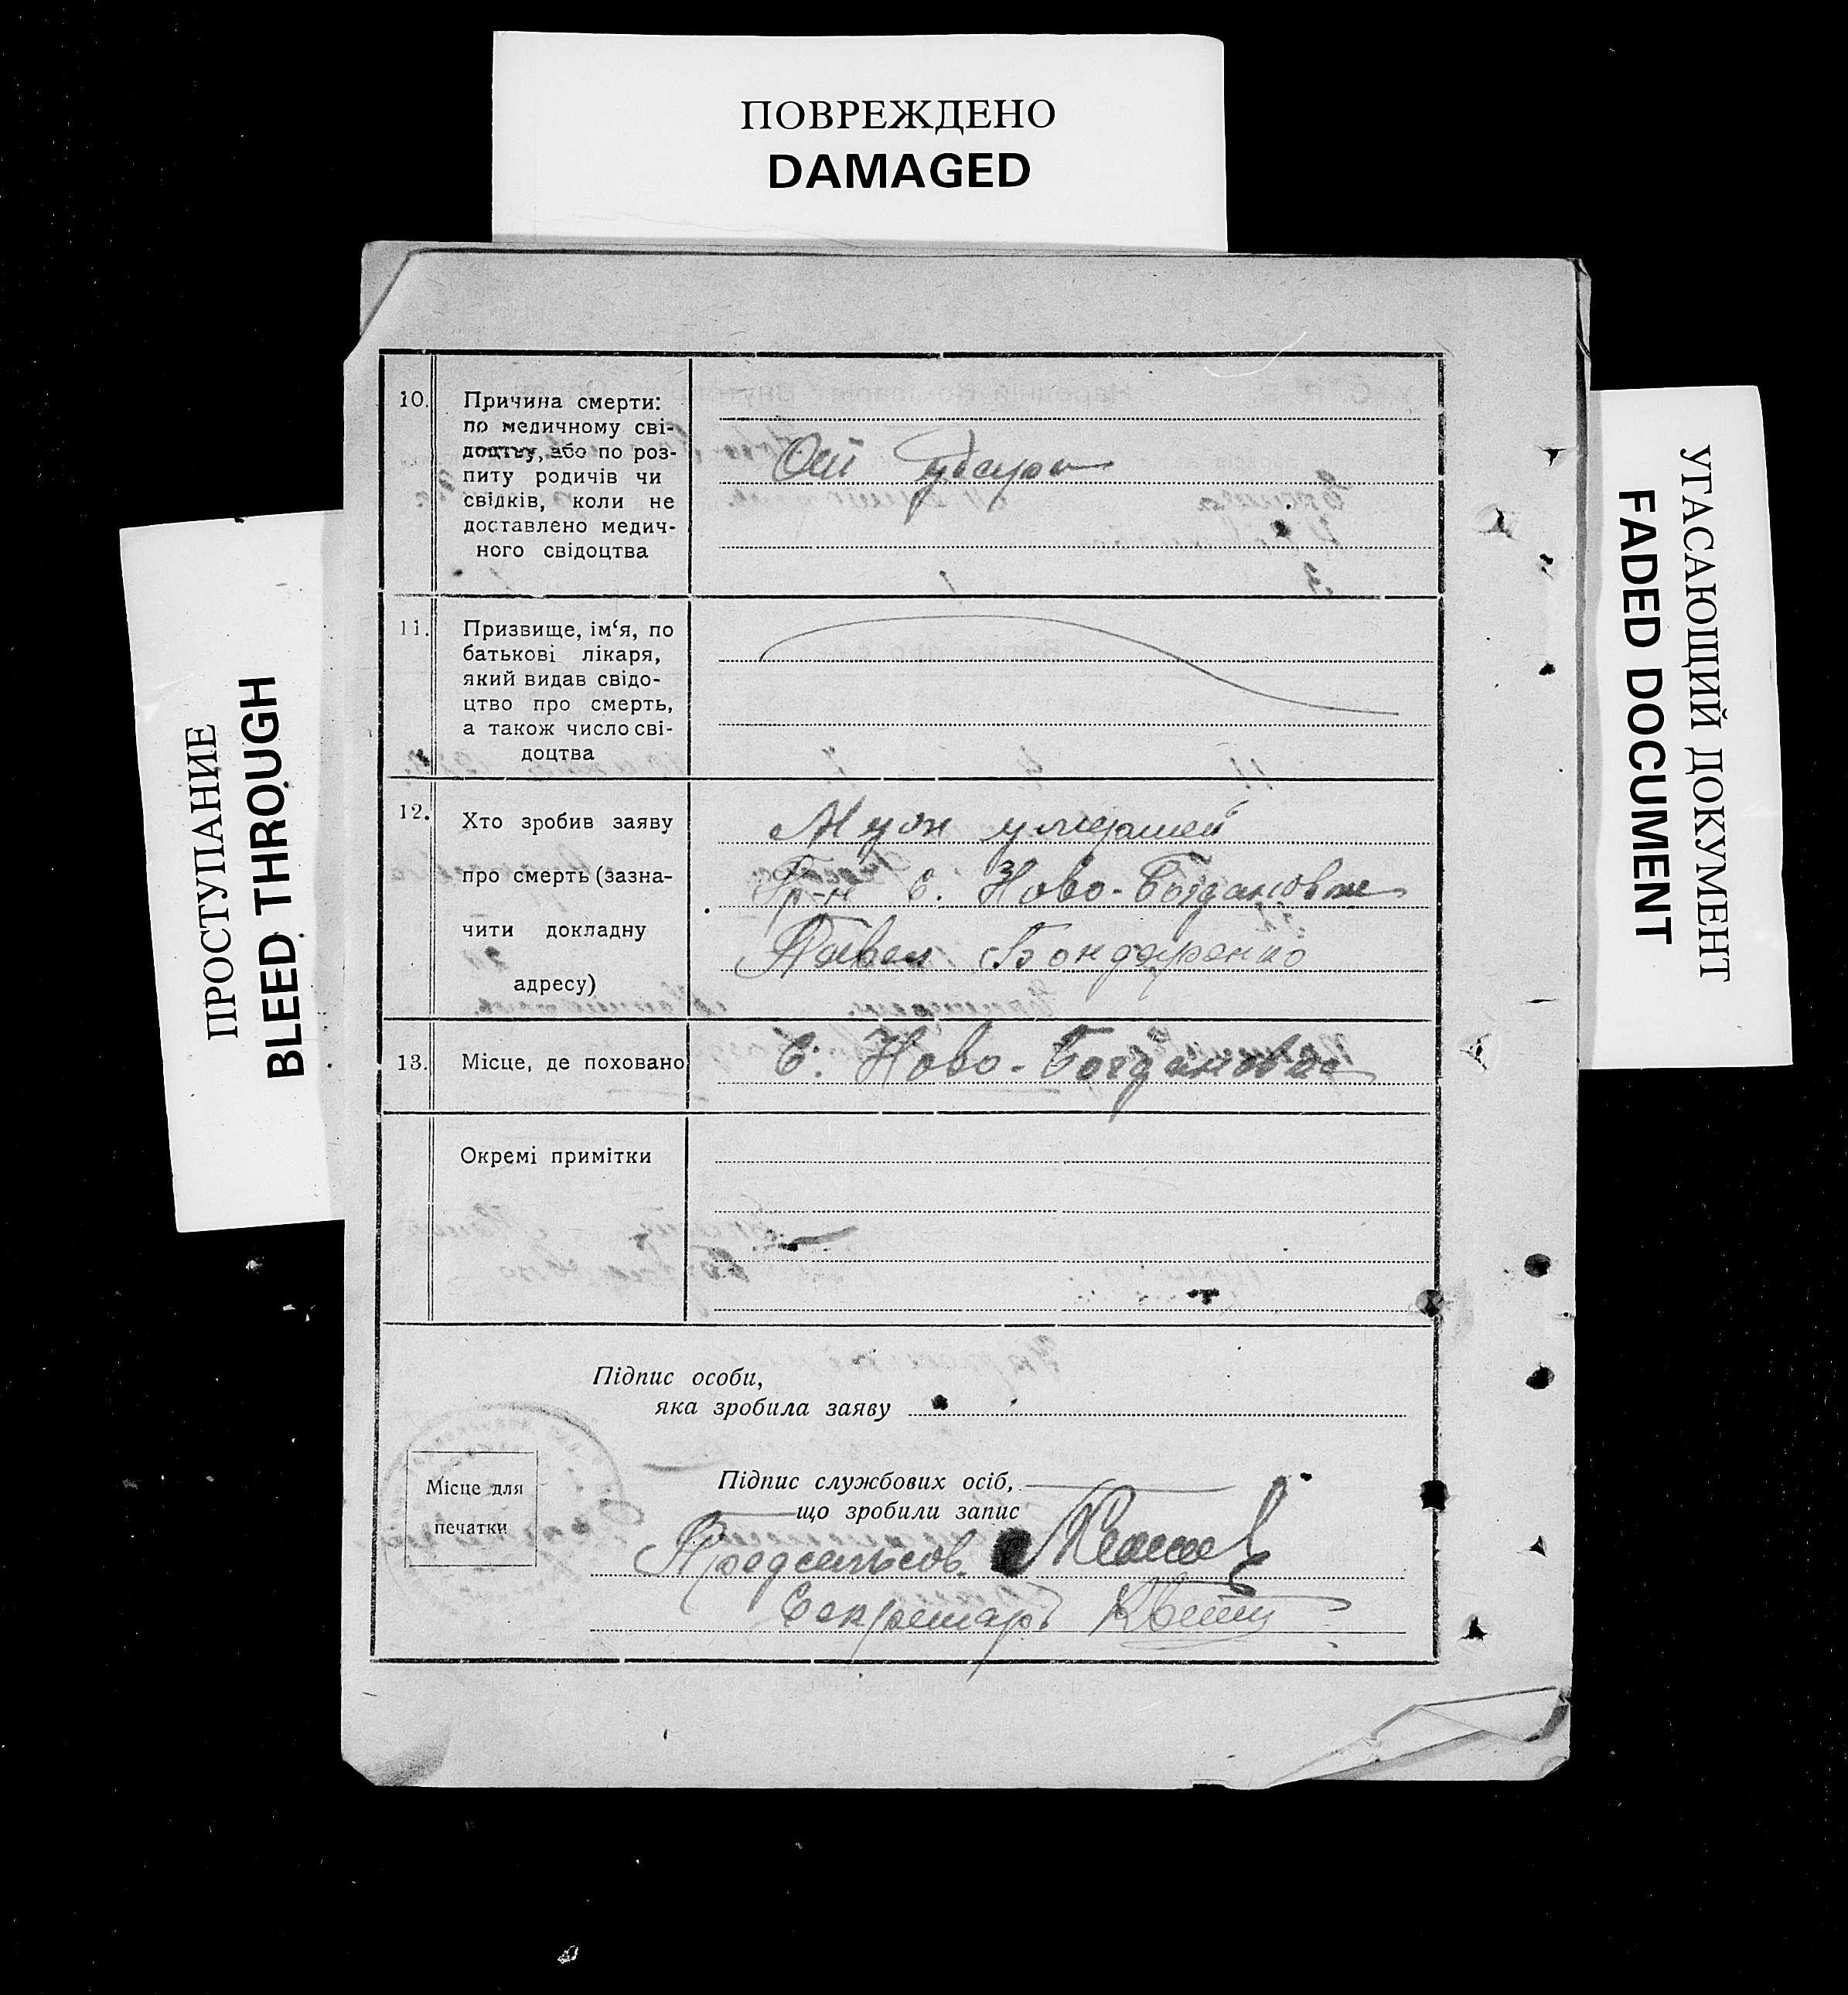 ПОВРЕЖДЕНО
DAMAGED
ПРОСТУПАНИЕ
BLEED THROUGH
УГАСАЮЩИЙ ДОКУМЕНТ
FADED DOCUMENT
10.
Причина смерти:
по медичному сві-
доцтву, або по роз-
питу родичів чи
свідків, коли не
доставлено медич-
ного свідоцтва
От удара
11.
Призвище, ім‘я, по
батькові лікаря,
який видав свідо-
цтво про смерть,
а також число сві-
доцтва
12.
Хто зробив заяву
про смерть (зазна-
чити докладну
адресу)
Муж умершей
Гр-н С. Ново-Богдановки
Павел Бондаренко
13.
Місце, де поховано
С. Ново-Богдановка
Окремі примітки
Підпис особи,
яка зробила заяву
Місце для
печатки
Підпис службових осіб,
що зробили запис
Предсельсов.
Секретарь